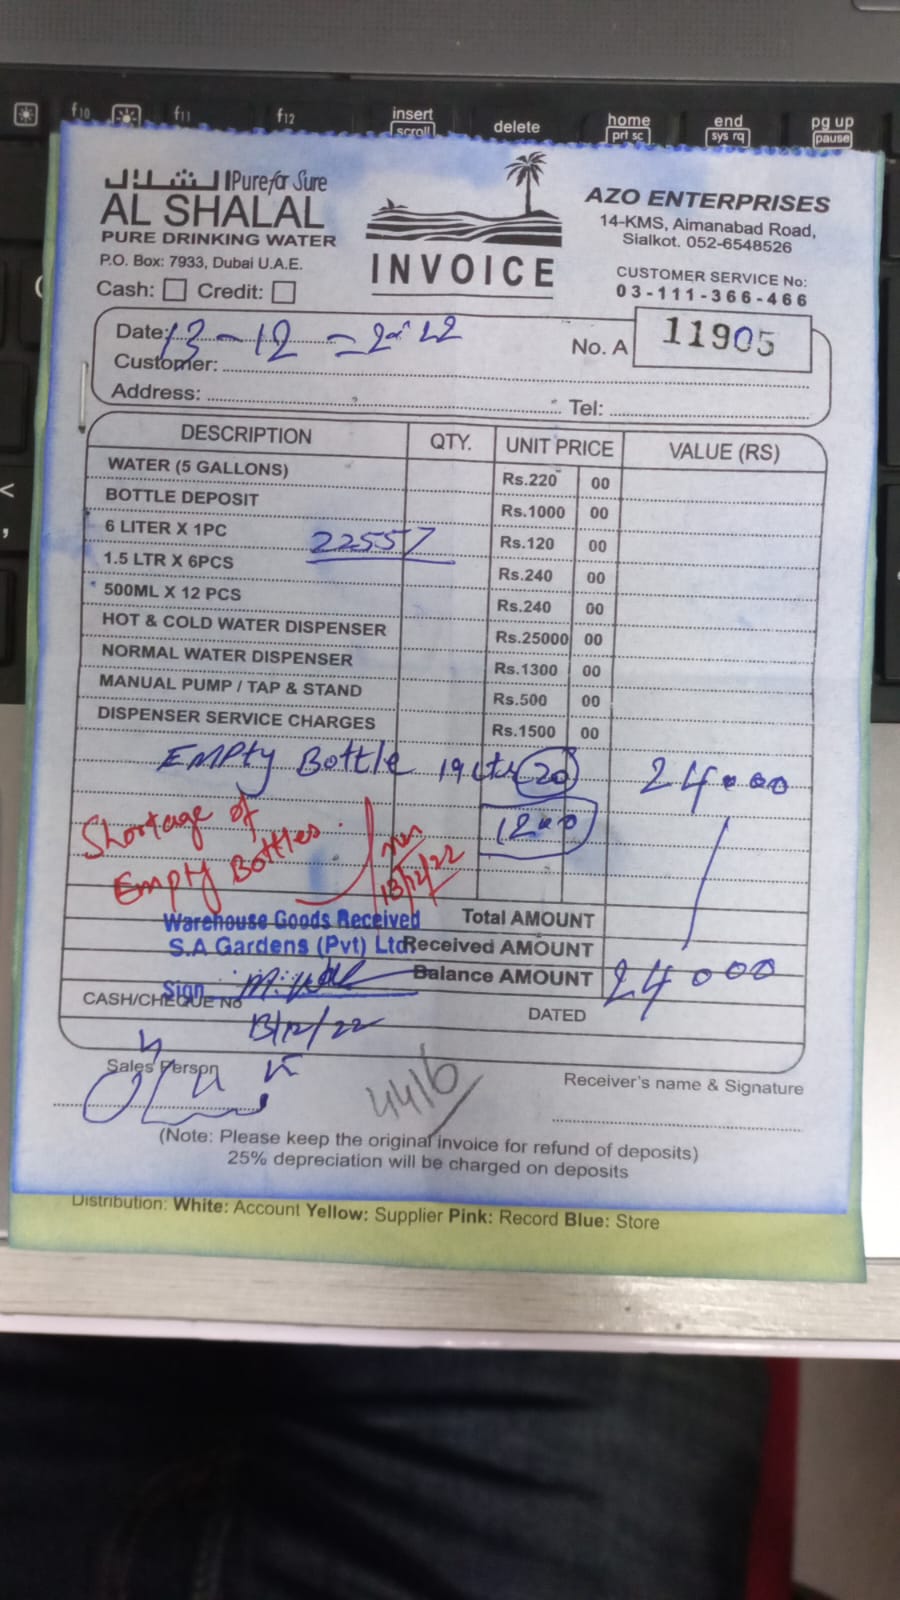 f10 f11 f12 insert scroll delete home prt sc end sys rq pg up pause
الشلال Pure for Sure
AL SHALAL
PURE DRINKING WATER
P.O. Box: 7933, Dubai U.A.E.
Cash: Credit:
INVOICE
AZO ENTERPRISES
14-KMS, Aimanabad Road,
Sialkot. 052-6548526
CUSTOMER SERVICE No:
03-111-366-466
Date: 13-12-2022
No. A 11905
Customer:
Address: Tel:
DESCRIPTION QTY. UNIT PRICE VALUE (RS)
WATER (5 GALLONS) Rs.220 00
BOTTLE DEPOSIT Rs.1000 00
6 LITER X 1PC 22557 Rs.120 00
1.5 LTR X 6PCS Rs.240 00
500ML X 12 PCS Rs.240 00
HOT & COLD WATER DISPENSER Rs.25000 00
NORMAL WATER DISPENSER Rs.1300 00
MANUAL PUMP / TAP & STAND Rs.500 00
DISPENSER SERVICE CHARGES Rs.1500 00
EMPty Bottle 19 Ltr 20 24000
1200
Shortage of
Empty Bottles.
13/12/22
Warehouse Goods Received
S.A Gardens (Pvt) Ltd
Sign
Total AMOUNT
Received AMOUNT
Balance AMOUNT 24000
CASH/CHEQUE No DATED
13/12/22
Sales Person
4416
Receiver's name & Signature
(Note: Please keep the original invoice for refund of deposits)
25% depreciation will be charged on deposits
Distribution: White: Account Yellow: Supplier Pink: Record Blue: Store